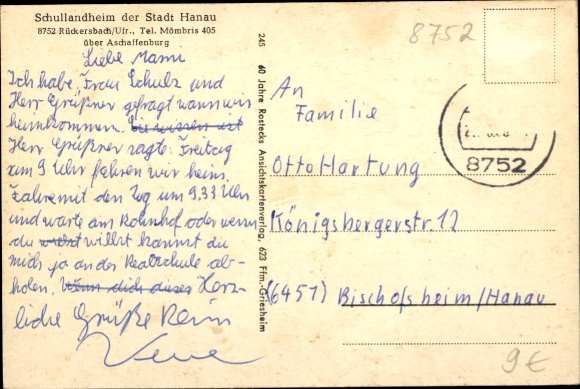 Schullandheim der Stadt Hanau
8752 Rückersbach/Ufr., Tel. Mömbris 405
über Aschaffenburg
Liebe Mami
Ich habe Frau Schulz und
Herr Grüßner gefragt wann wir
heimkommen. Sie wissen ist
Herr Grüßner sagte: Freitag
um 9 Uhr fahren wir heim.
Fahre mit den Zug um 9.33 Uhr
und warte am Bahnhof oder wenn
du willst kannst du
mich ja an der Realschule ab-
holen. Wenn dich dieses Herz-
liche Grüße
245 60 Jahre Rostecks Ansichtskartenverlag, 623 Ffm.-Griesheim
8752
8752
An
Familie
Otto Hartung
Königsbergerstr. 12
(6451) Bischofsheim/Hanau
9€